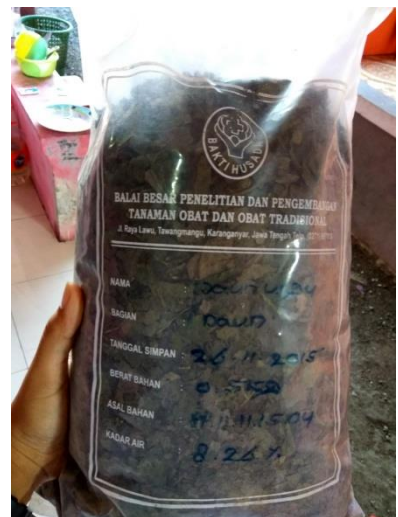 BAKTI HUSADA
BALAI BESAR PENELITIAN DAN PENGEMBANGAN
TANAMAN OBAT DAN OBAT TRADISIONAL
Jl. Raya Lawu, Tawangmangu, Karanganyar, Jawa Tengah
NAMA : Daun
BAGIAN : Daun
TANGGAL SIMPAN : 26.11.2015
BERAT BAHAN
ASAL BAHAN
KADAR AIR : 8.26 %